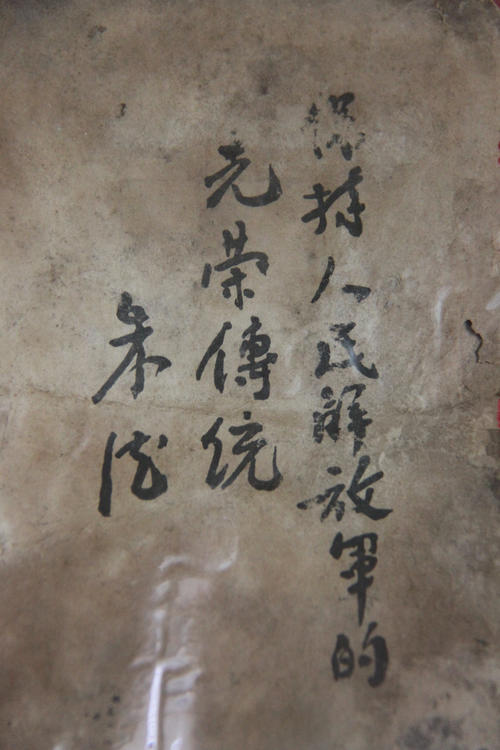 保持人民解放軍的
光荣傳统
朱德